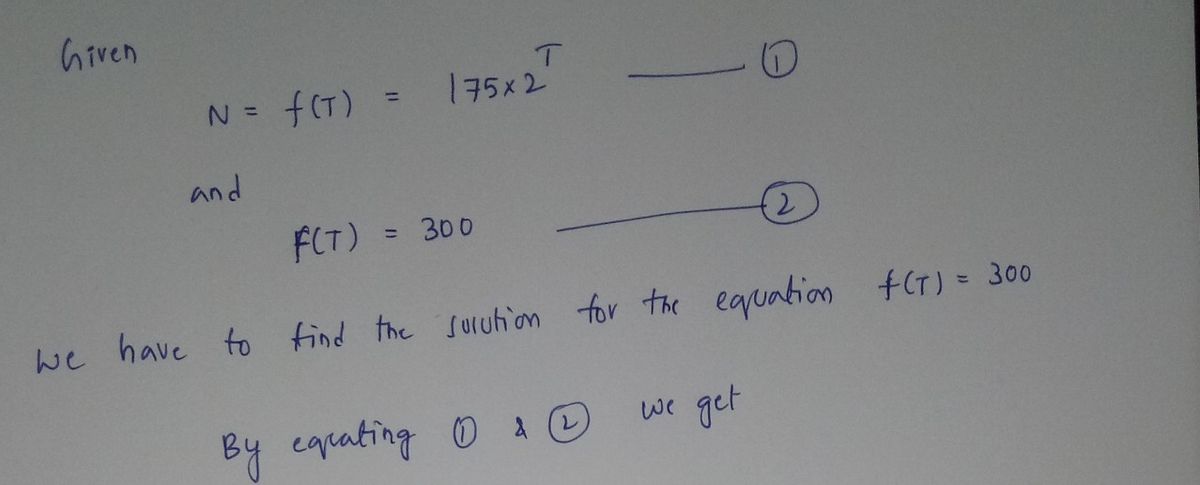 Given
N = f(T) = 175×2^T ——— ①
and
F(T) = 300 ——— ②
We have to find the solution for the equation f(T) = 300
By equating ① & ② we get